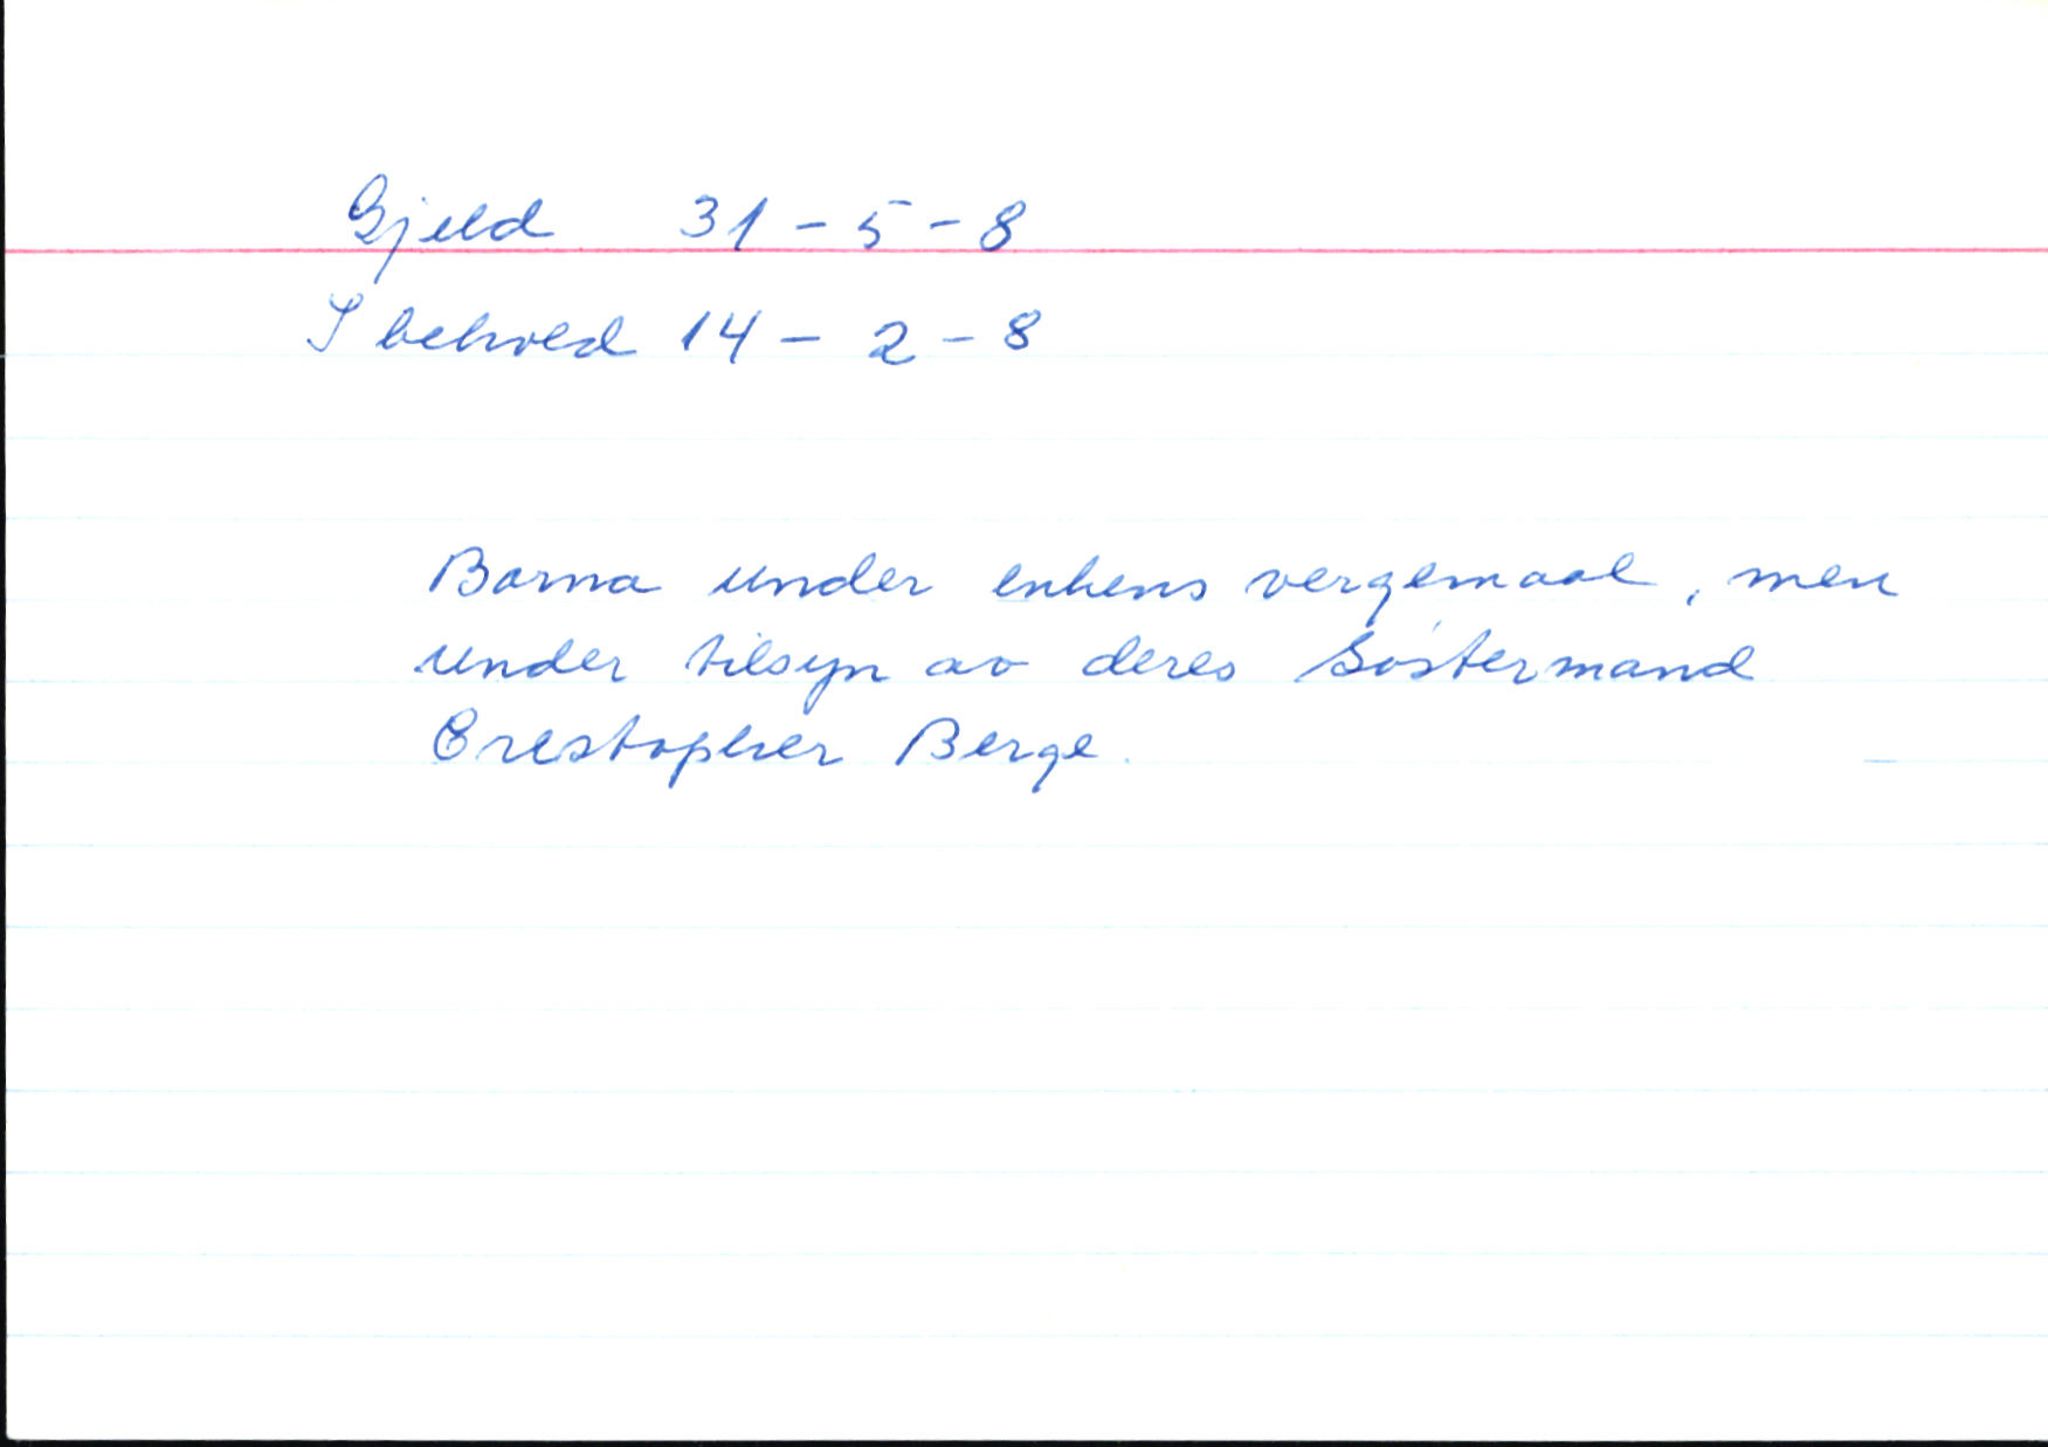 Gjeld 31 - 5 - 8
I behold 14 - 2 - 8
Borna under enkens vergemaal, men
under tilsyn av deres Søstermand
Crestopher Berge.